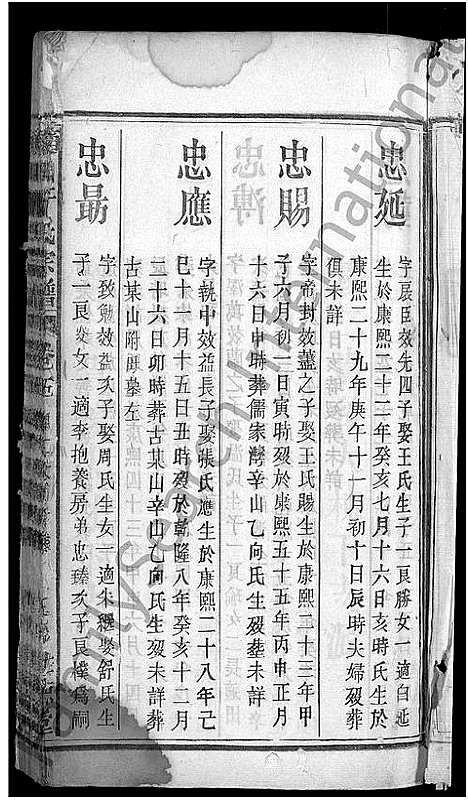 忠延
字宸臣效先四子娶王氏生子一良勝女一適白延
生於康熙二十二年癸亥七月十六日亥時氏生於
康熙二十九年庚午十一月初十日辰時夫婦歿葬
俱未詳
忠賜
字帝封效蓋之子娶王氏賜生於康熙三十三年甲
子六月初二日寅時歿於康熙五十五年丙申正月
十六日申時葬儒家灣辛山乙向氏生歿葬未詳
忠應
字執中效益長子娶張氏應生於康熙二十八年己
巳十一月十五日丑時歿於乾隆八年癸亥十二月
二十六日卯時葬古某山辛山乙向氏生歿未詳葬
古某山附馭墓左
忠勗
字致勉效益次子娶周氏生女一適朱經娶舒氏生
子一良女一適李抱養房弟忠臻次子良樸爲嗣
氏宗譜
familysearch International